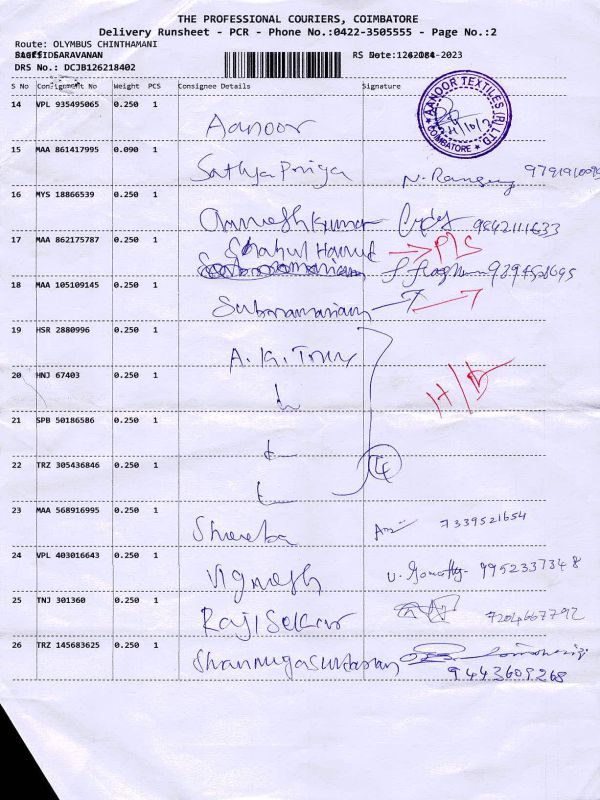 THE PROFESSIONAL COURIERS, COIMBATORE
Delivery Runsheet - PCR - Phone No.:0422-3505555 - Page No.:2
Route: OLYMBUS CHINTHAMANI
SARAVANAN RS Note:
DRS No.: DCJB126218402
S No Consignment No Weight PCS Consignee Details Signature
14 VPL 935495065 0.250 1
Aanoor
AANOOR TEXTILES (P) LTD
COIMBATORE
15 MAA 861417995 0.090 1
Sathya Priya
16 MYS 18866539 0.250 1
9842111633
17 MAA 862175787 0.250 1
Shahul Hamid
18 MAA 105109145 0.250 1
Subramaniam
19 HSR 2880996 0.250 1
A.K.
20 HNJ 67403 0.250 1
21 SPB 50186586 0.250 1
22 TRZ 305436846 0.250 1
4
23 MAA 568916995 0.250 1
Sheeba 7339521654
24 VPL 403016643 0.250 1
Vignesh 9952337348
25 TNJ 301360 0.250 1
RajiSekar 7204667792
26 TRZ 145683625 0.250 1
Shanmugasundaram
9443609268